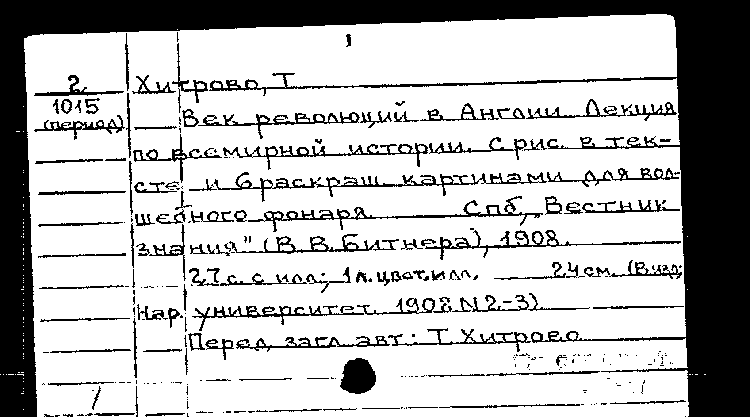 1
2.
1015
(период)
Хитрово, Т
Век революций в Англии. Лекция
по всемирной истории. С рис. в тек-
сте и 6 раскраш. картинами для вол-
шебного фонаря. Спб, „Вестник
знания" (В. В. Битнера), 1908.
27 с. с илл; 1 л. цвет. илл. 24 см. (В изд:
Нар. университет. 1908 N 2-3)
Перед загл. авт.: Т. Хитрово